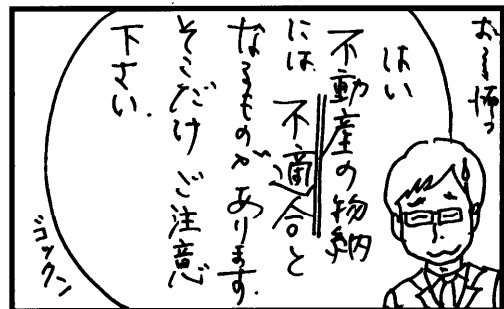 お〜怖っ
はい
不動産の物納
には 不適合と
なるものがあります.
そこだけ ご注意
下さい.
ゴックン